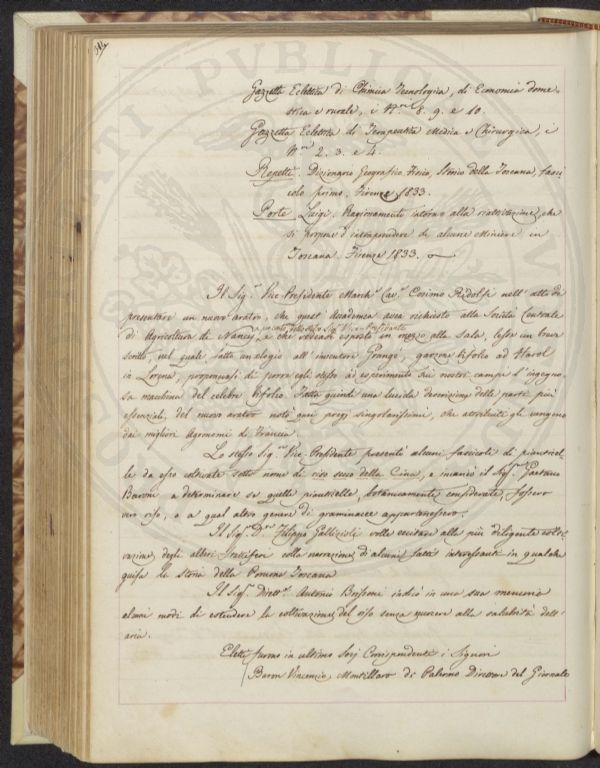 Gazzetta Eclettica di Chimica Tecnologica, di Economia dome-
stica e rurale, i N.ri 8. 9. e 10.
Gazzetta Eclettica di Terapeutica Medica e Chirurgica, i
N.ri 2. 3. e 4.
Repetti. Dizionario Geografico Fisico, Storico della Toscana, fasci
colo primo. Firenze 1833.
Porte Luigi. Ragionamento intorno alla riattivazione, che
si propone d'intraprendere di alcune Miniere in
Toscana. Firenze 1833.
Il Sig.r Vice-Presidente March.e Cav.r Cosimo Ridolfi nell'atto di
presentare un nuovo aratro, che quest'Accademia avea richiesto alla Società Centrale
di Agricoltura di Nancy, e che vedeasi esposto in mezzo alla Sala, lesse un breve
scritto, nel quale fatto un elogio all'inventore Grangé, garzone bifolco ad Harol
in Lorena, proponeasi di porre egli stesso ad esperimento sui nostri campi l'ingegno-
sa macchina del celebre bifolco. Fatta quindi una lucida descrizione delle parti più
essenziali, del nuovo aratro notò quei pregi singolarissimi, che attribuiti gli vengono
dai migliori Agronomi di Francia.
Lo stesso Sig.r Vice-Presidente presentò alcuni fascicoli di pianticel-
le da esso coltivate sotto nome di riso secco della Cina, e incaricò il Sig.r Gaetano
Baroni a determinare se quelle pianticelle, botanicamente considerate, fossero
vero riso, o a qual altro genere di graminacee appartenessero.
Il Sig.r D.re Filippo Gallizioli volle eccitare alla più diligente colti-
vazione degli alberi fruttiferi colla narrazione di alcuni fatti interessanti in qualche
guisa la storia della Pomona Toscana.
Il Sig.r Dirett.e Antonio indicò in una sua memoria
alcuni modi di estendere la coltivazione del riso senza nuocere alla salubrità dell'
aria.
Eletti furono in ultimo Socj Corrispondenti i Signori
Baron Vincenzio Mortillaro di Palermo Direttore del Giornale